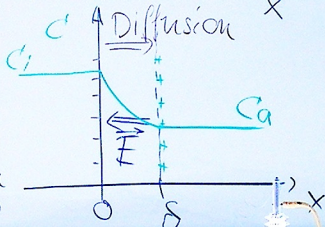 x
C Diffusion
Ci
Ca
E
0 δ x